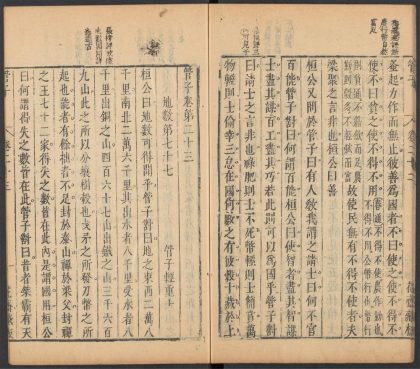 釜起力作而無止彼善為國者不曰使之使不得不
使不曰貧之使不得不用故使民無有不得不使者夫
梁聚之言非也桓公曰善
桓公又問於管子曰有人教我謂之請士曰何不官
百能管子對曰何謂百能桓公曰使智者盡其智謀
士盡其謀百工盡其巧若此則可以為國乎管子對
曰請士之言非也祿肥則士不死幣輕則士簡賞萬
物輕則士偷幸三怠在國何數之有彼穀十藏於上
管子卷第二十三
地數第七十七 管子輕重十
桓公曰地數可得聞乎管子對曰地之東西二萬八
千里南北二萬六千里其出水者八千里受水者八
千里出銅之山四百六十七山出鐵之山三千六百
九山此之所以分壤樹穀也戈矛之所發刀幣之所
起也能者有餘拙者不足封於泰山禪於梁父封禪
之王七十二家得失之數皆在此內是謂國用桓公
曰何謂得失之數皆在此管子對曰昔者桀霸有天
管子 卷二十三